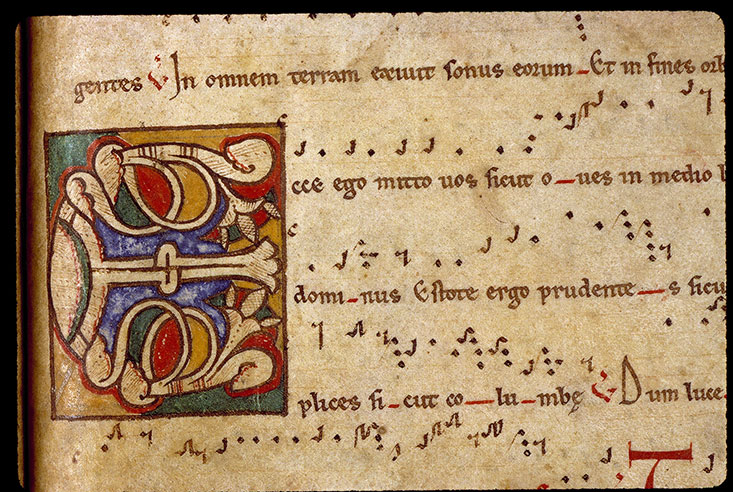 gentes V In omnem terram exiuit sonus eorum Et in fines orb
Ecce ego mitto uos sicut o-ues in medio l
domi-nus Estote ergo prudente-s sicu
plices si-cut co-lu-mbę V Dum luce